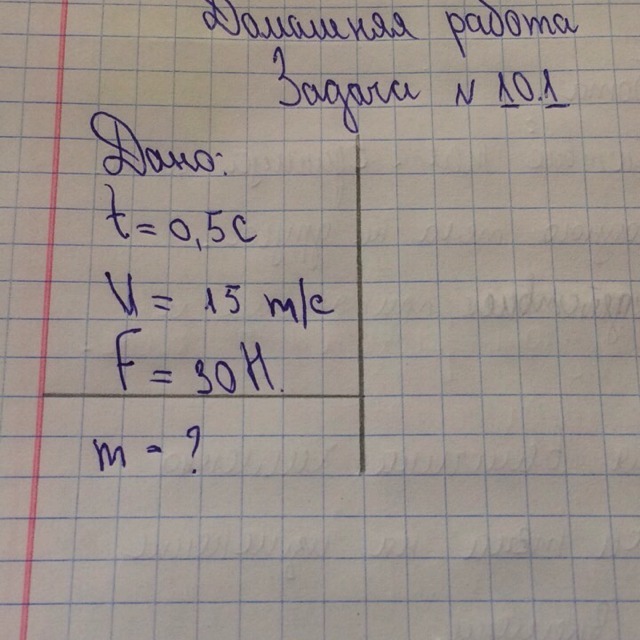 Домашняя работа
Задача № 10.1
Дано:
t = 0,5с
V = 15 m/c
F = 30Н.
m - ?